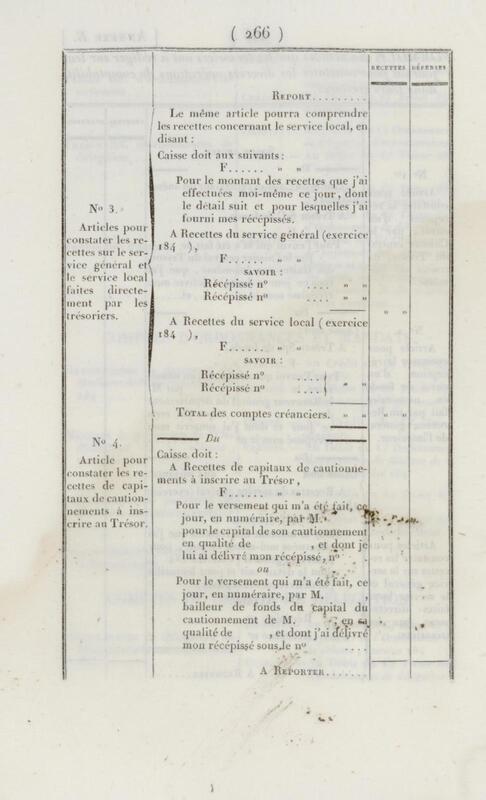 ( 266 )
RECETTES DÉPENSES
REPORT.........
Le même article pourra comprendre
les recettes concernant le service local, en
disant :
Caisse doit aux suivants :
F...... » »
Pour le montant des recettes que j'ai
effectuées moi-même ce jour, dont
le détail suit et pour lesquelles j'ai
fourni mes récépissés.
A Recettes du service général (exercice
184 ),
F...... » »
SAVOIR :
Récépissé nº .... » »
Récépissé nº .... » »
» »
A Recettes du service local (exercice
184 ),
F...... » »
SAVOIR :
Récépissé nº ....
Récépissé nº .... » »
TOTAL des comptes créanciers. » » » »
Nº 3.
Articles pour
constater les re-
cettes sur le ser-
vice général et
le service local
faites directe-
ment par les
trésoriers.
Du
Caisse doit :
A Recettes de capitaux de cautionne-
ments à inscrire au Trésor,
F...... » »
Pour le versement qui m'a été fait, ce
jour, en numéraire, par M.
pour le capital de son cautionnement
en qualité de , et dont je
lui ai délivré mon récépissé, nº .
ou
Pour le versement qui m'a été fait, ce
jour, en numéraire, par M. ,
bailleur de fonds du capital du
cautionnement de M. , en sa
qualité de , et dont j'ai délivré
mon récépissé sous le nº ....
Nº 4.
Article pour
constater les re-
cettes de capi-
taux de caution-
nements à ins-
crire au Trésor.
A REPORTER.......